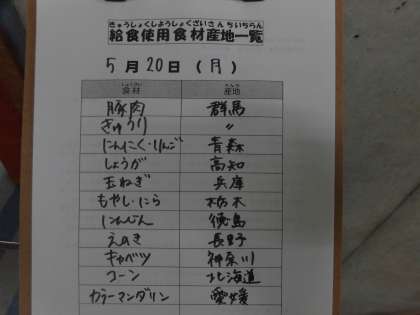 きゅうしょくしようしょくざいさんちいちらん
給食使用食材産地一覧
5月20日(月)
食材 産地
豚肉 群馬
きゅうり 〃
にんにく・りんご 青森
しょうが 高知
玉ねぎ 兵庫
もやし・にら 栃木
にんじん 徳島
えのき 長野
キャベツ 神奈川
コーン 北海道
カラーマンダリン 愛媛